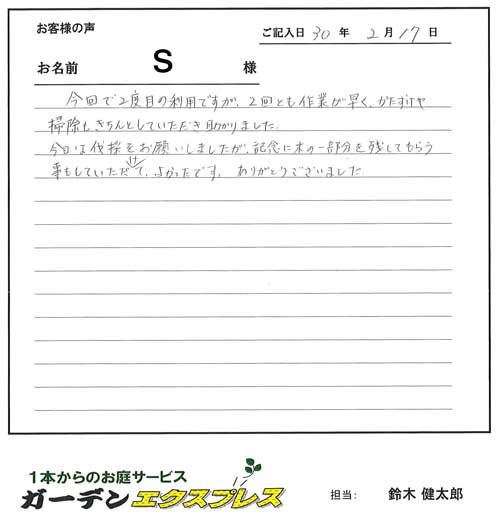 お客様の声
ご記入日 30 年 2 月 17 日
お名前 S 様
今回で2度目の利用ですが、2回とも作業が早く、かたずけや
掃除もきちんとしていただき助かりました。
今日は伐採をお願いしましたが、記念に木の一部分を残してもらう
事もしていただけて、よかったです。ありがとうございました
1本からのお庭サービス
ガーデンエクスプレス
担当: 鈴木 健太郎